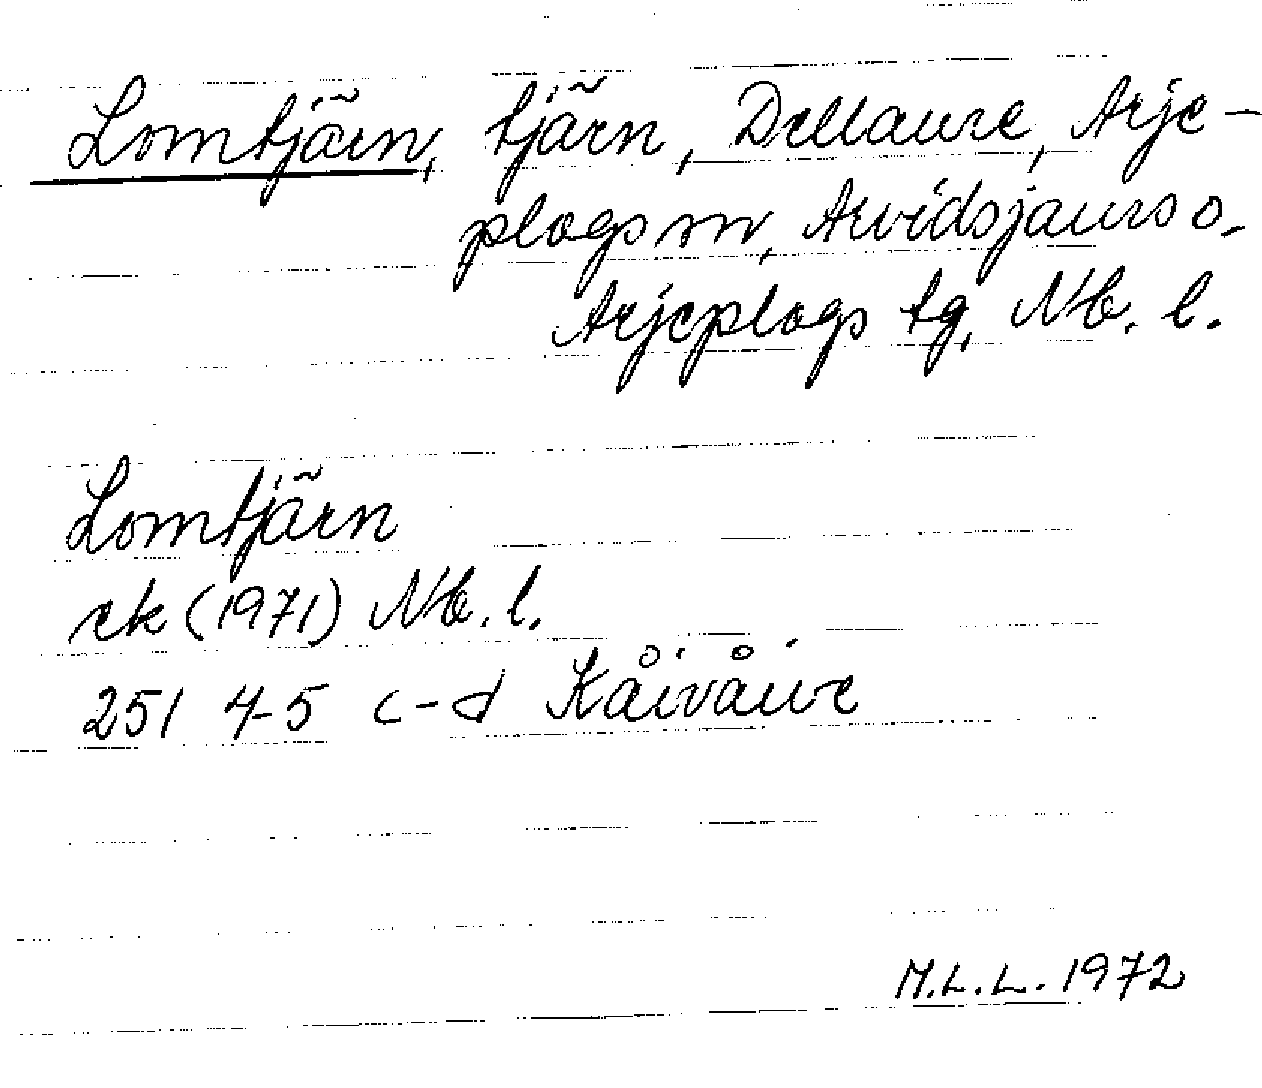 Lomtjärn, tjärn, Dellaure, Arje-
plogs sn, Arvidsjaurs o.
Arjeplogs tg, Nb. l.
Lomtjärn
ek (1971) Nb. l.
25I 4-5 c-d Kåivåive
M.L.L. 1972